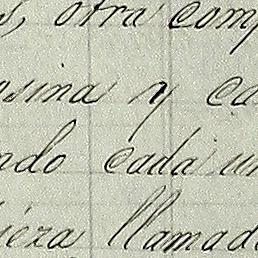 s, otra comp
sina y ca
ndo cada un
ieza llamad